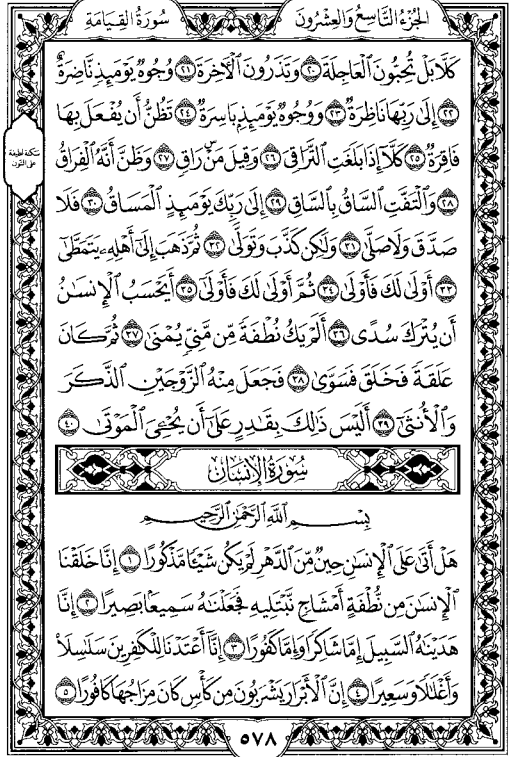 سُورَةُ القِيَامَةِ
الجُزْءُ التَّاسِعُ وَالعِشْرُونَ
كَلَّا بَلْ تُحِبُّونَ ٱلْعَاجِلَةَ ٢٠ وَتَذَرُونَ ٱلْأَخِرَةَ ٢١ وُجُوهٌ يَوْمَئِذٍ نَّاضِرَةٌ
٢٢ إِلَىٰ رَبِّهَا نَاظِرَةٌ ٢٣ وَوُجُوهٌ يَوْمَئِذٍ بَاسِرَةٌ ٢٤ تَظُنُّ أَن يُفْعَلَ بِهَا
فَاقِرَةٌ ٢٥ كَلَّآ إِذَا بَلَغَتِ ٱلتَّرَاقِيَ ٢٦ وَقِيلَ مَنْ رَاقٍ ٢٧ وَظَنَّ أَنَّهُ ٱلْفِرَاقُ
٢٨ وَٱلْتَفَّتِ ٱلسَّاقُ بِٱلسَّاقِ ٢٩ إِلَىٰ رَبِّكَ يَوْمَئِذٍ ٱلْمَسَاقُ ٣٠ فَلَا
صَدَّقَ وَلَا صَلَّىٰ ٣١ وَلَٰكِن كَذَّبَ وَتَوَلَّىٰ ٣٢ ثُمَّ ذَهَبَ إِلَىٰٓ أَهْلِهِۦ يَتَمَطَّىٰٓ
٣٣ أَوْلَىٰ لَكَ فَأَوْلَىٰ ٣٤ ثُمَّ أَوْلَىٰ لَكَ فَأَوْلَىٰٓ ٣٥ أَيَحْسَبُ ٱلْإِنسَٰنُ
أَن يُتْرَكَ سُدًى ٣٦ أَلَمْ يَكُ نُطْفَةً مِّن مَّنِيٍّ يُمْنَىٰ ٣٧ ثُمَّ كَانَ
عَلَقَةً فَخَلَقَ فَسَوَّىٰ ٣٨ فَجَعَلَ مِنْهُ ٱلزَّوْجَيْنِ ٱلذَّكَرَ
وَٱلْأُنثَىٰٓ ٣٩ أَلَيْسَ ذَٰلِكَ بِقَٰدِرٍ عَلَىٰٓ أَن يُحْـِۧيَ ٱلْمَوْتَىٰ ٤٠
سُورَةُ الإِنسَانِ
بِسْمِ ٱللَّهِ ٱلرَّحْمَٰنِ ٱلرَّحِيمِ
هَلْ أَتَىٰ عَلَى ٱلْإِنسَٰنِ حِينٌ مِّنَ ٱلدَّهْرِ لَمْ يَكُن شَيْـًٔا مَّذْكُورًا ١ إِنَّا خَلَقْنَا
ٱلْإِنسَٰنَ مِن نُّطْفَةٍ أَمْشَاجٍ نَّبْتَلِيهِ فَجَعَلْنَٰهُ سَمِيعًۢا بَصِيرًا ٢ إِنَّا
هَدَيْنَٰهُ ٱلسَّبِيلَ إِمَّا شَاكِرًا وَإِمَّا كَفُورًا ٣ إِنَّآ أَعْتَدْنَا لِلْكَٰفِرِينَ سَلَٰسِلَا۟
وَأَغْلَٰلًا وَسَعِيرًا ٤ إِنَّ ٱلْأَبْرَارَ يَشْرَبُونَ مِن كَأْسٍ كَانَ مِزَاجُهَا كَافُورًا ٥
سَكتة لَطيفة
على النون
٥٧٨